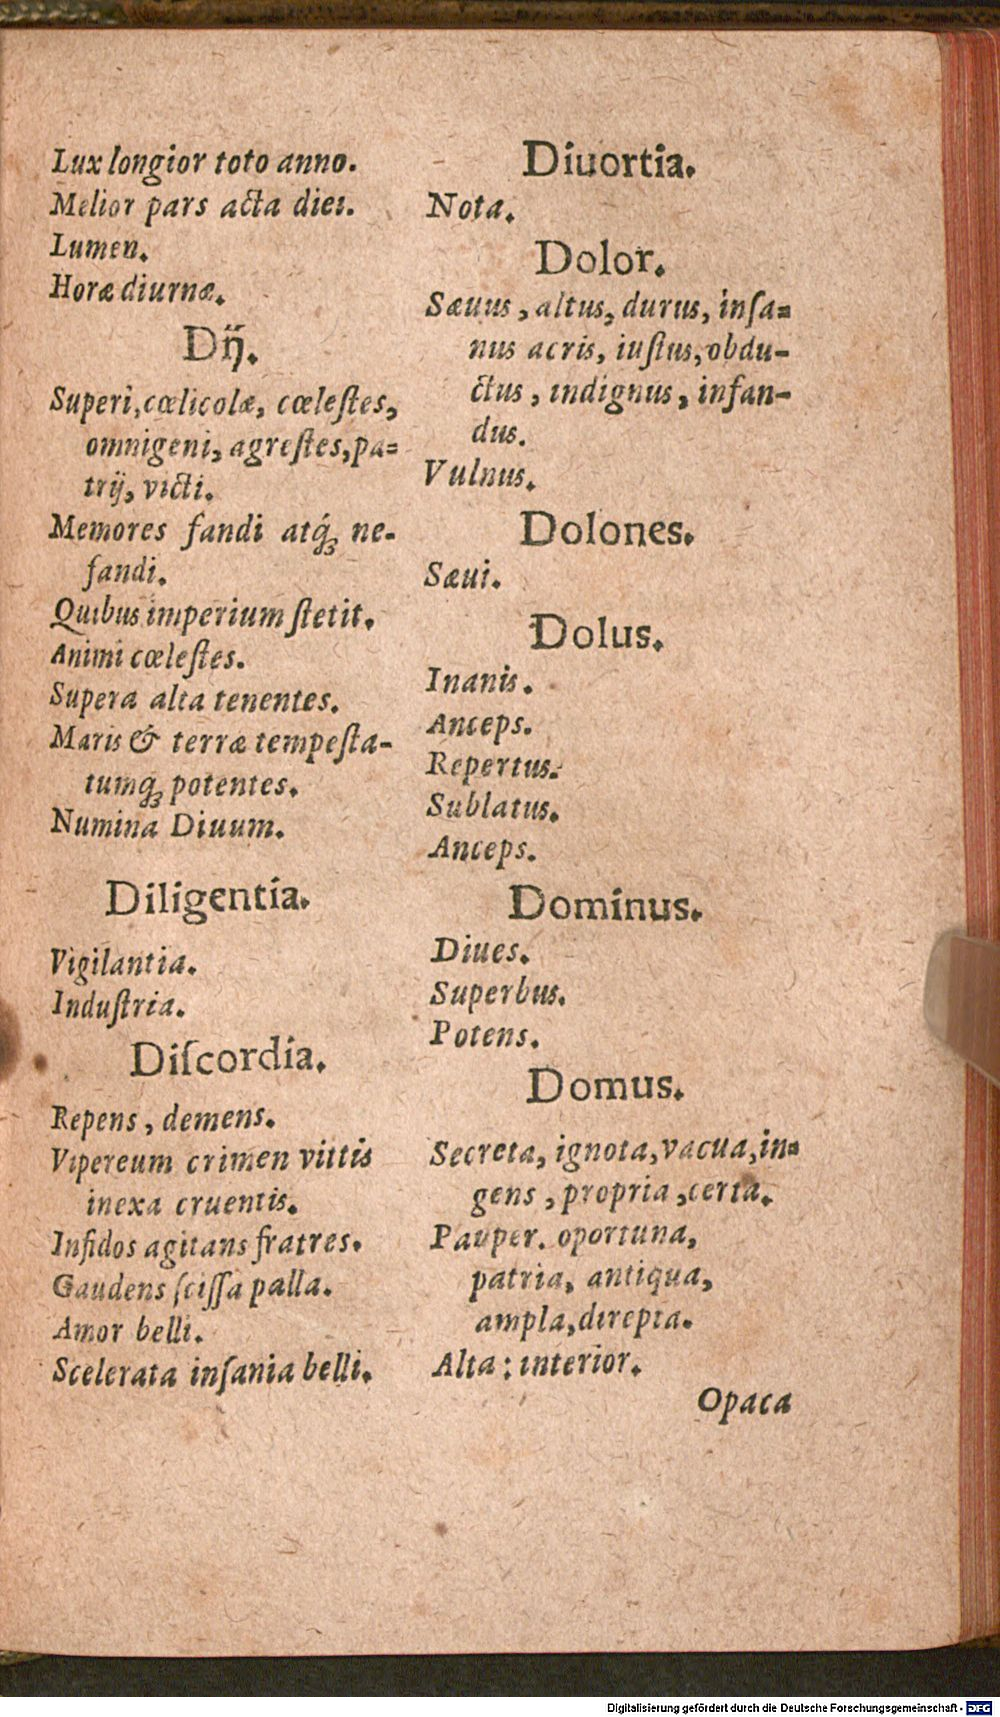 Lux longior toto anno.
Melior pars acta diei.
Lumen.
Horæ diurnæ.
Dĳ.
Superi, cœlicolæ, cœleſtes,
omnigeni, agreſtes, pa-
trĳ, victi.
Memores fandi atq́ꝫ ne-
fandi.
Quibus imperium ſtetit.
Animi cœleſtes.
Supera alta tenentes.
Maris & terræ tempeſta-
tumq́ꝫ potentes.
Numina Diuum.
Diligentia.
Vigilantia.
Induſtria.
Diſcordia.
Repens, demens.
Vipereum crimen vittis
inexa cruentis.
Infidos agitans fratres.
Gaudens ſciſſa palla.
Amor belli.
Scelerata inſania belli.
Diuortia.
Nota.
Dolor.
Sæuus, altus, durus, inſa-
nus acris, iuſtus, obdu-
ctus, indignus, infan-
dus.
Vulnus.
Dolones.
Sæui.
Dolus.
Inanis.
Anceps.
Repertus.
Sublatus.
Anceps.
Dominus.
Diues.
Superbus.
Potens.
Domus.
Secreta, ignota, vacua, in-
gens, propria, certa.
Pauper. oportuna,
patria, antiqua,
ampla, direpta.
Alta: interior.
Opaca
Digitalisierung gefördert durch die Deutsche Forschungsgemeinschaft - DFG